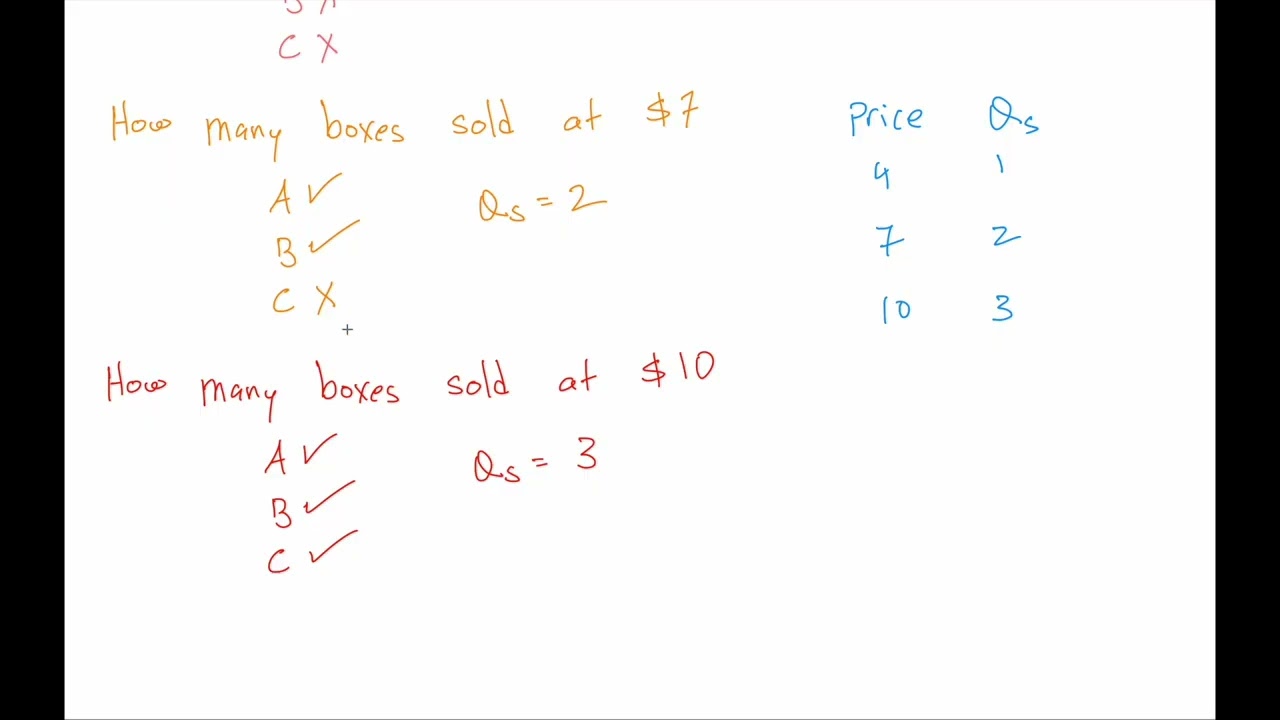 B X
C X
How many boxes sold at $7
A ✓
B ✓
C X
Qs = 2
Price Qs
4 1
7 2
10 3
How many boxes sold at $10
A ✓
B ✓
C ✓
Qs = 3